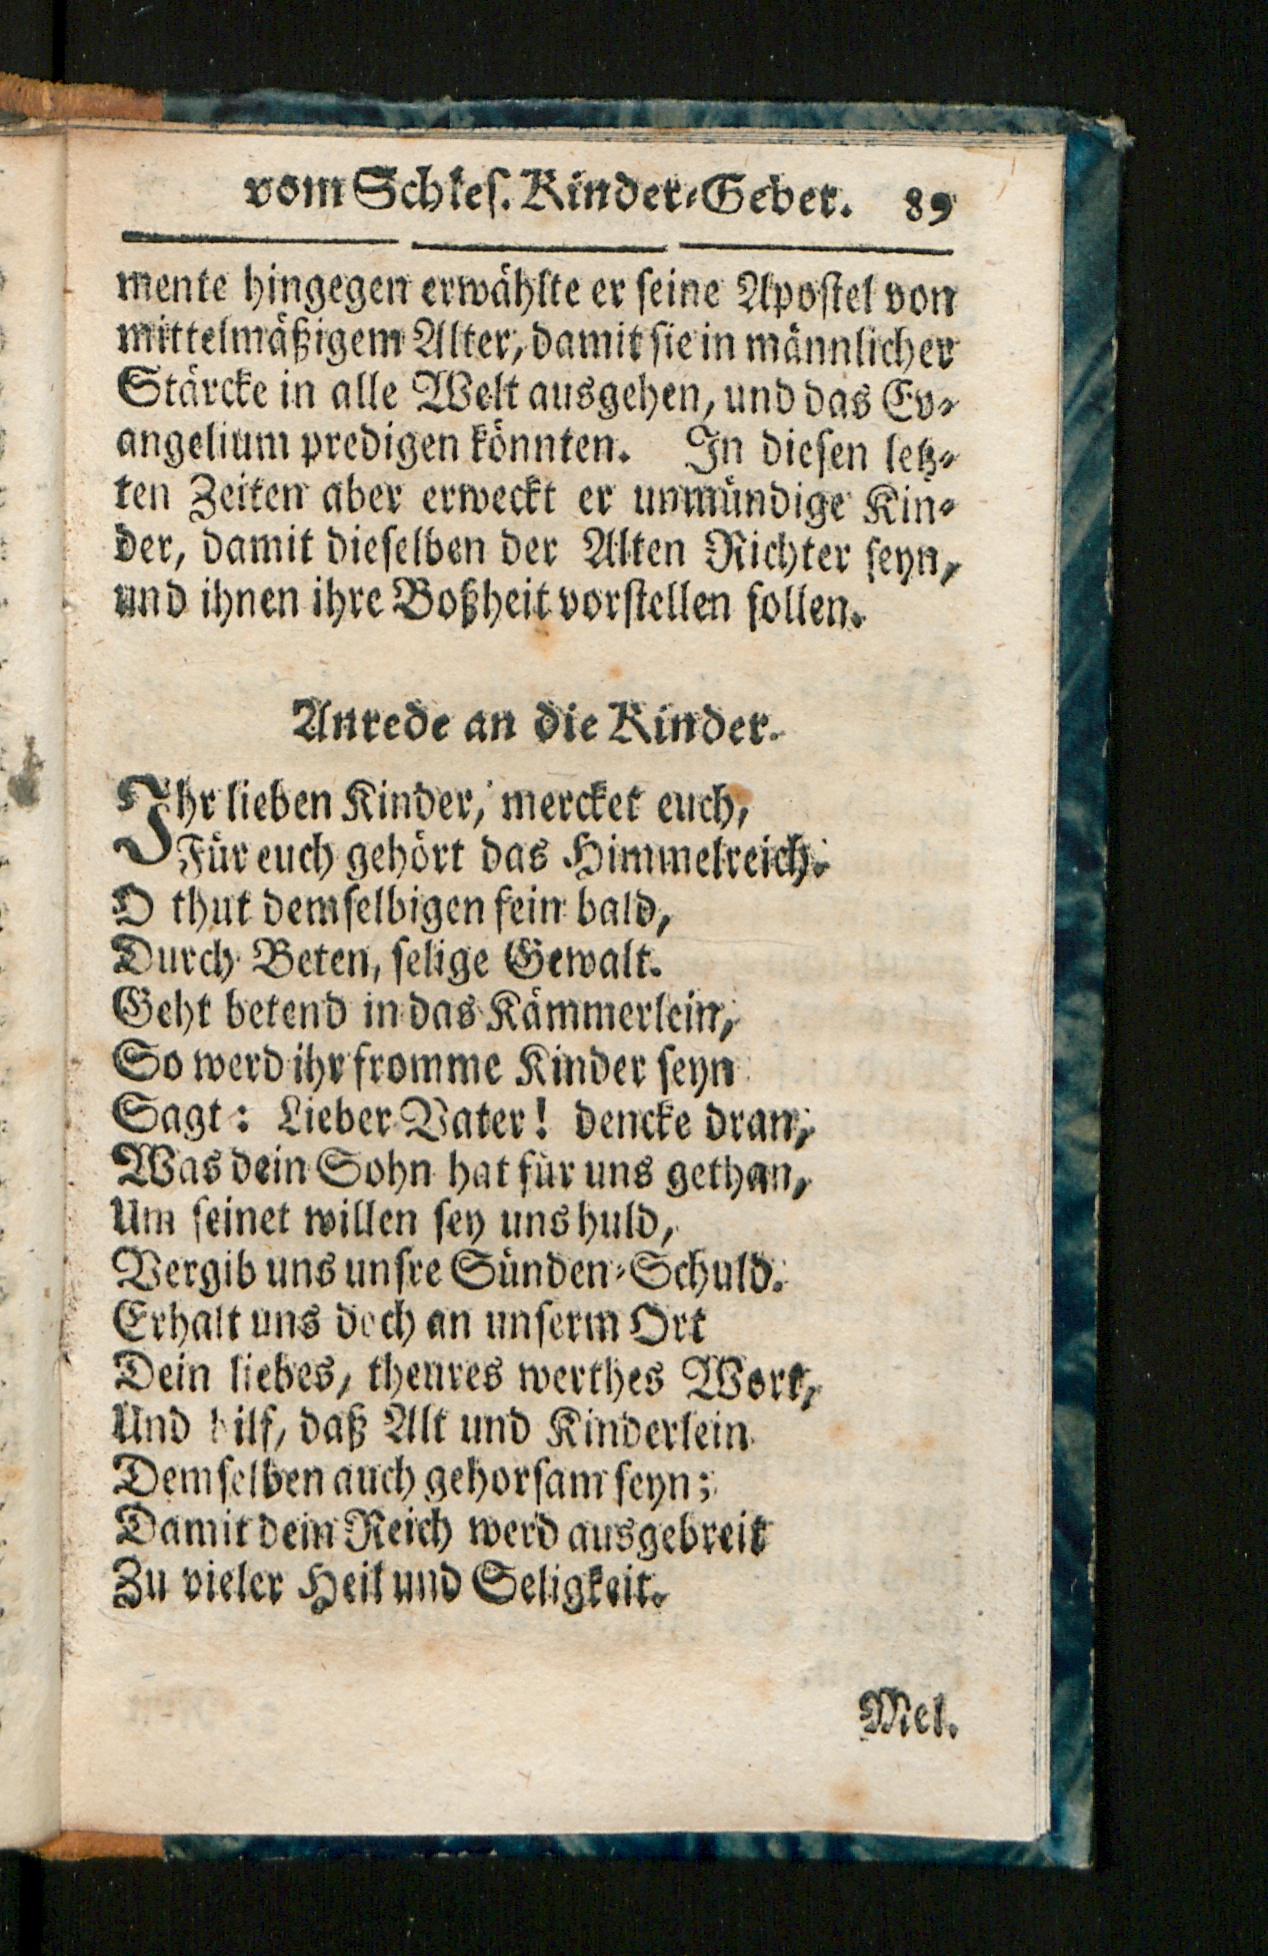 vom Schles. Kinder-Gebet. 89
mente hingegen erwählte er seine Apostel von
mittelmäßigem Alter, damit sie in männlicher
Stärcke in alle Welt ausgehen, und das Ev-
angelium predigen könnten. In diesen letz-
ten Zeiten aber erweckt er unmündige Kin-
der, damit dieselben der Alten Richter seyn,
und ihnen ihre Boßheit vorstellen sollen.
Anrede an die Kinder.
Ihr lieben Kinder, mercket euch,
Für euch gehört das Himmelreich.
O thut demselbigen fein bald,
Durch Beten, selige Gewalt.
Geht betend in das Kämmerlein,
So werd ihr fromme Kinder seyn
Sagt: Lieber Vater! dencke dran,
Was dein Sohn hat für uns gethan,
Um seinet willen sey uns huld,
Vergib uns unsre Sünden-Schuld.
Erhalt uns doch an unserm Ort
Dein liebes, theures werthes Wort,
Und hilf, daß Alt und Kinderlein
Demselben auch gehorsam seyn;
Damit dein Reich werd ausgebreit
Zu vieler Heil und Seligkeit.
Mel.